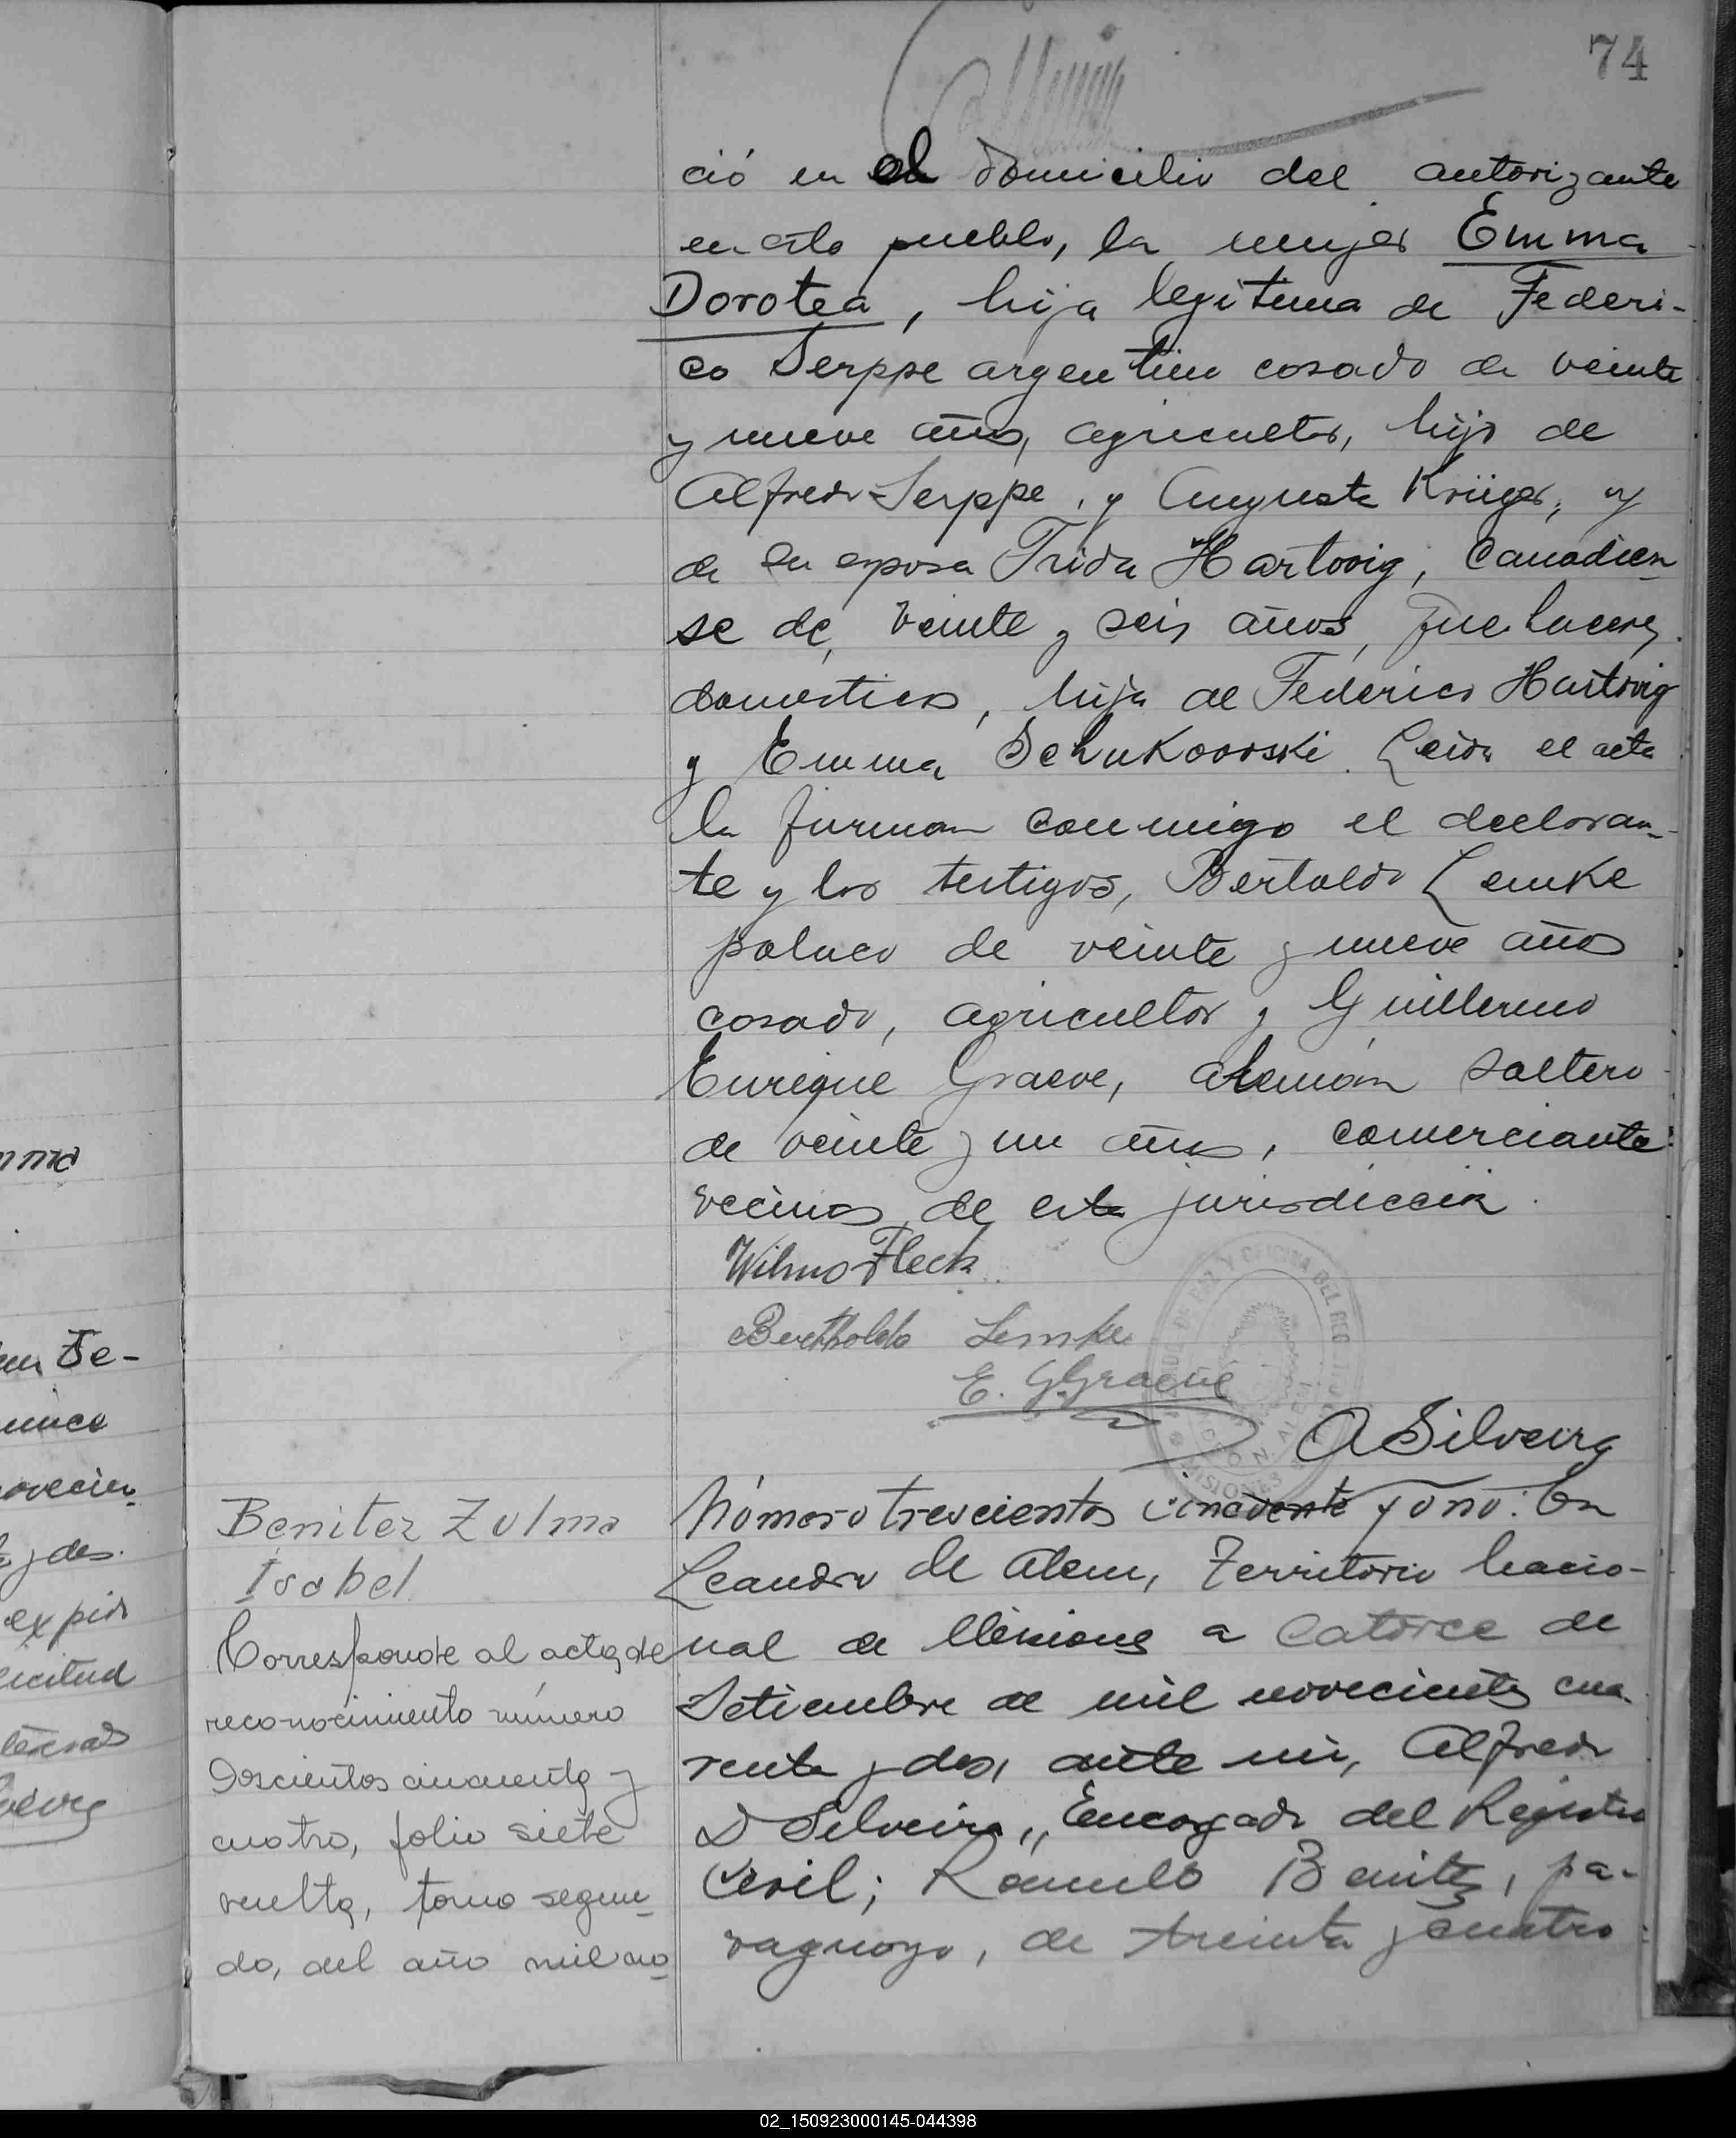 74
ció en el domicilio del autorizante
en este pueblo, la mujer Emma
Dorotea, hija legitima de Federi-
co Serppe argentino casado de veinte
y nueve años, agricultor, hijo de
Alfredo Serppe, y Augusta Krüger, y
de su esposa Frida Hartwig, Canadien
se de, veinte y seis años, quehaceres
domesticos, hija de Federico Hartwig
y Emma Schukowski. Leida el acta
la firman conmigo el declaran-
te y los testigos, Bertoldo Lemke
polaco de veinte y nueve años
casado, agricultor y Guillermo
Enrique Graeve, aleman soltero
de veinte y un años, comerciante
vecinos de esta jurisdiccion.
Wilmo Fleck
Bertholdo Lemke
E. G. Graeve
A Silveira
Benitez Zulma
Isabel
Corresponde al acta de
reconocimiento número
doscientos cincuenta y
cuatro, folio siete
vuelta, tomo segun
do, del año mil no
Número trescientos cincuenta y uno: En
Leandro N Alem, Territorio Nacio-
nal de Misiones a Catorce de
Setiembre de mil novecientos cua
renta y dos, ante mi, Alfredo
D Silveira, Encargado del Registro
Civil; Romulo Benitez, pa-
raguayo, de treinta y cuatro
02_150923000145-044398